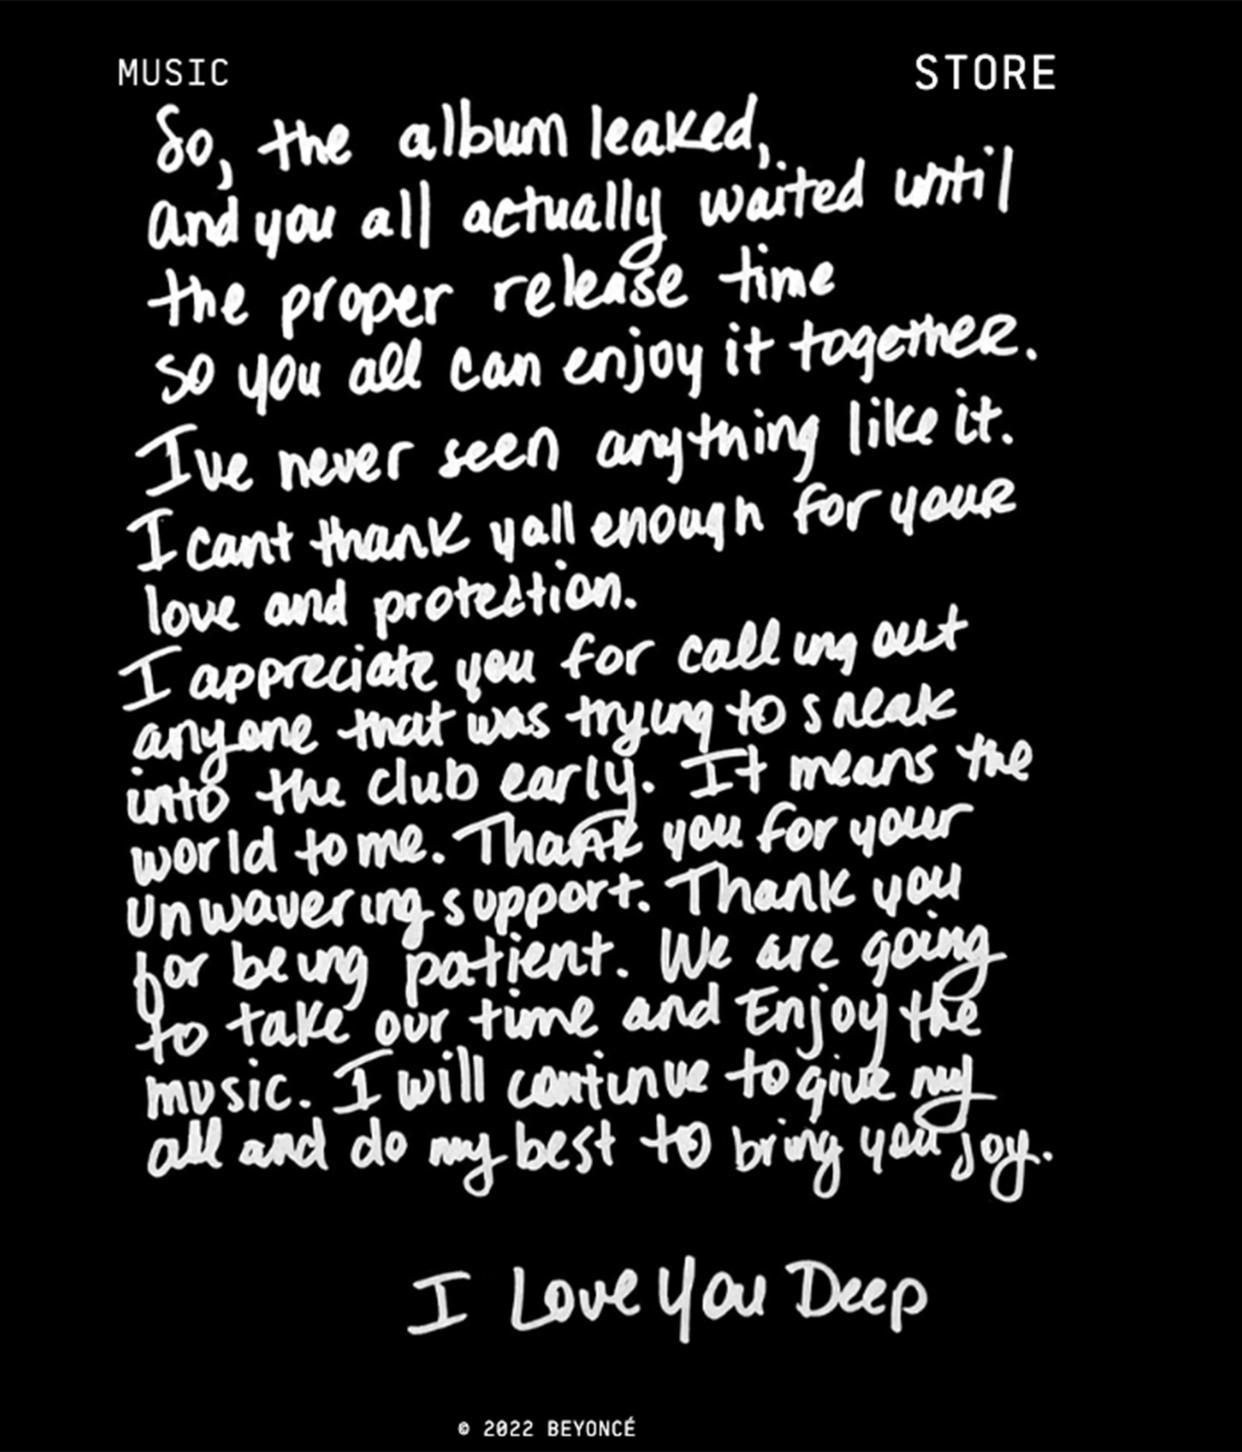 MUSIC
STORE
So, the album leaked,
and you all actually waited until
the proper release time
so you all can enjoy it together.
I've never seen anything like it.
I cant thank yall enough for your
love and protection.
I appreciate you for calling out
anyone that was trying to sneak
into the club early. It means the
world to me. Thank you for your
unwavering support. Thank you
for being patient. We are going
to take our time and Enjoy the
music. I will continue to give my
all and do my best to bring you joy.
I Love You Deep
© 2022 BEYONCÉ